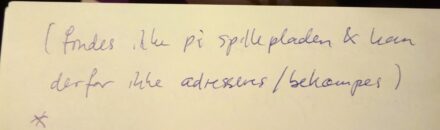 (findes ikke på spillepladen & kan
derfor ikke adresseres/bekæmpes)
*